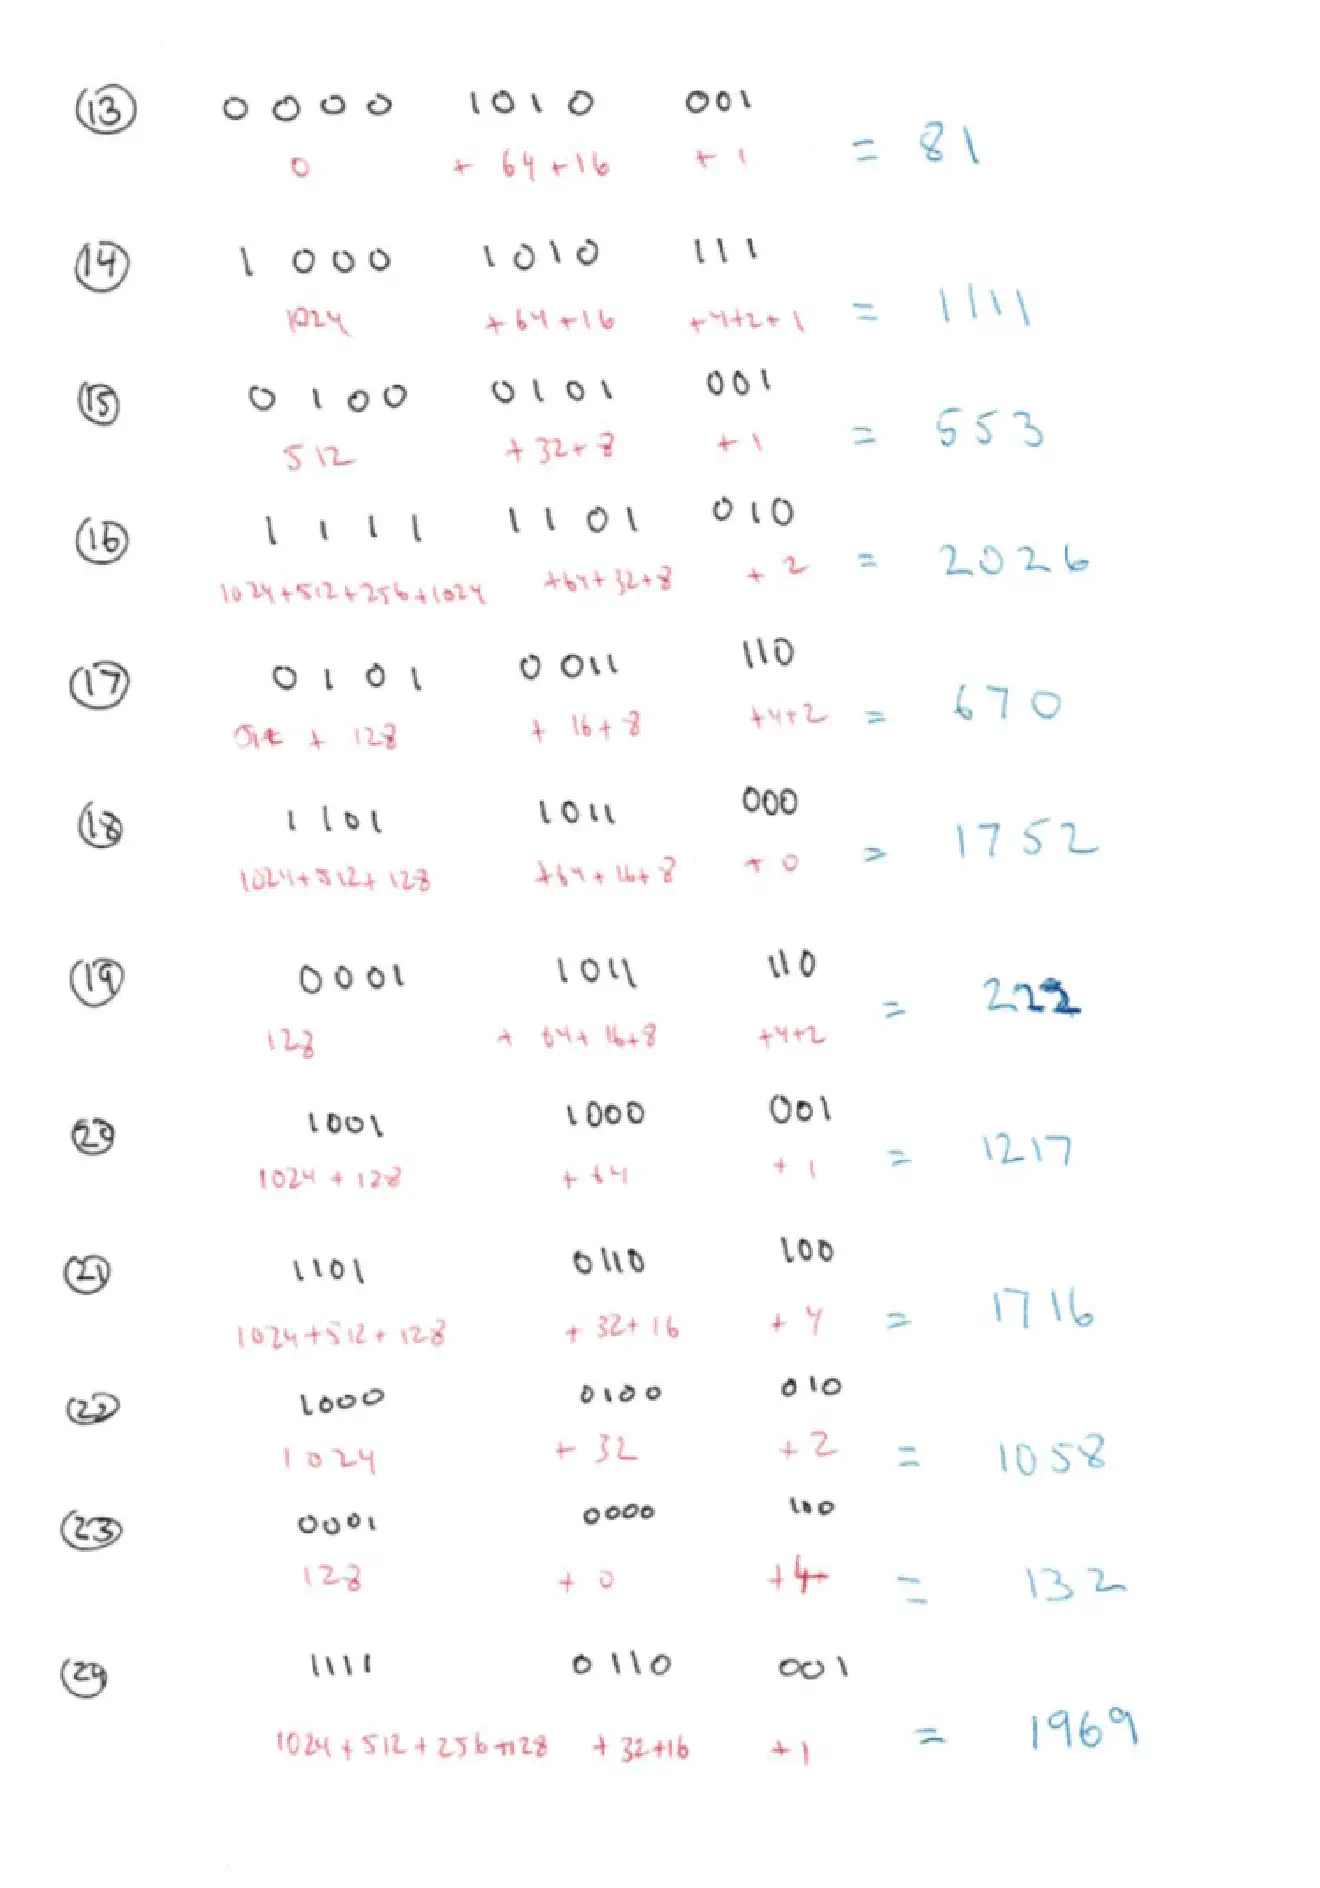 13 0000 1010 001
0 + 64+16 + 1 = 81
14 1000 1010 111
1024 +64+16 +4+2+1 = 1111
15 0100 0101 001
512 +32+8 +1 = 553
16 1111 1101 010
1024+512+256+1024 +64+32+8 + 2 = 2026
17 0101 0011 110
+ 128 + 16+8 +4+2 = 670
18 1101 1011 000
1024+512+128 +64+16+8 + 0 = 1752
19 0001 1011 110
128 + 64+16+8 +4+2 = 222
20 1001 1000 001
1024 + 128 + 64 + 1 = 1217
21 1101 0110 100
1024+512+128 + 32+16 + 4 = 1716
22 1000 0100 010
1024 + 32 + 2 = 1058
23 0001 0000 100
128 + 0 +4 = 132
24 1111 0110 001
1024+512+256+128 + 32+16 +1 = 1969